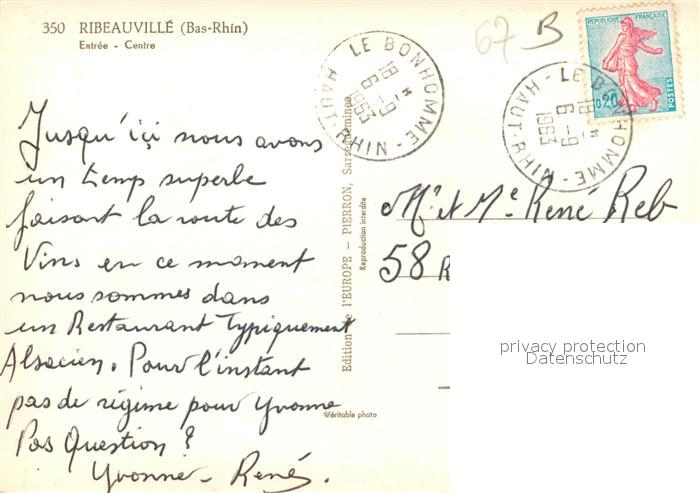 350 RIBEAUVILLÉ (Bas-Rhin)
Entrée - Centre
67 B
LE BONHOMME - HAUT-RHIN
18 H
6-9
1963
RÉPUBLIQUE FRANÇAISE
0,20
POSTES
LE BONHOMME - HAUT-RHIN
18 H
6-9
1963
Jusqu'içi nous avons
un temp superbe
faisant la route des
Vins en ce moment
nous sommes dans
un Restaurant Typiquement
Alsacien. Pour l'instant
pas de régime pour Yvonne
Pas Question ?
Yvonne - René.
Edition de l'EUROPE - PIERRON, Sarreguemines
Reproduction interdite
Véritable photo
Mr et Me René Reb
58 R
privacy protection
Datenschutz